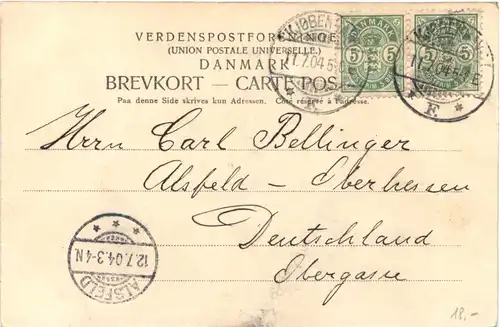 VERDENSPOSTFORENINGEN
(UNION POSTALE UNIVERSELLE.)
DANMARK
BREVKORT — CARTE POS
Paa denne Side skrives kun Adressen. Côté réservé à l'adresse.
DANMARK
5 5
KJØBEN
11.7.04.5
* F. *
Herrn Carl Bellinger
Alsfeld – Oberhessen
Deutschland
Obergasse
* * *
12.7.04.3-4N.
ALSFELD
18,-